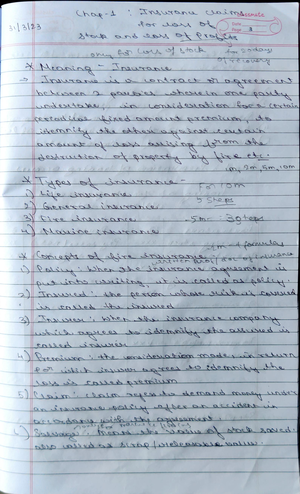 Chap-1 : Insurance Claims
for loss of
31/3/23
stock and loss of Profits
only for Loss of stock
* Meaning - Insurance
→ Insurance is a contract or agreement
between 2 parties where in one party
undertake, in consideration for a certain
periodical fixed amount premium, to
idemnify the other against certain
amount of loss arising from the
destruction of property by fire etc.
1m, 2m, 5m, 10m
* Types of insurance -
1) Life insurance
for 10m
2) General insurance
3) Fire insurance
5m : 3 Steps
4) Marine insurance
* Concepts of fire insurance
1m → formulas
1) Policy : When the insurance agreement is
put into writing, it is called as policy.
2) Insured : the person whose risk is covered
is called the insured
3) Insurer : When the insurance company
which agrees to idemnify the assured is
called insurer
4) Premium : the consideration made in return
for which insurer agrees to idemnify the
loss is called premium
5) Claim : Claim refers to demand money under
an insurance policy after an accident in
accordance with the agreement
6) Salvage : Means the value of stock saved
also called as scrap/